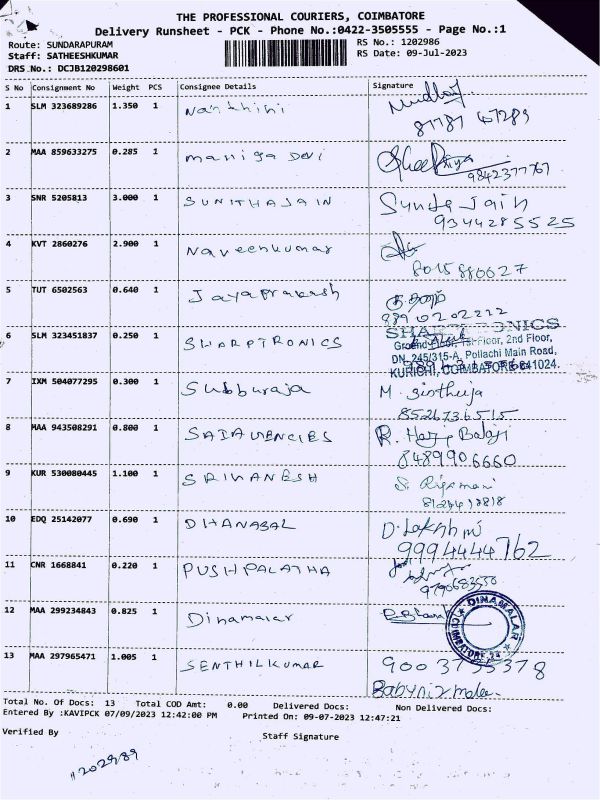 THE PROFESSIONAL COURIERS, COIMBATORE
Delivery Runsheet - PCK - Phone No.:0422-3505555 - Page No.:1
Route: SUNDARAPURAM
RS No.: 1202986
Staff: SATHEESHKUMAR
RS Date: 09-Jul-2023
DRS No.: DCJB120298601
S No Consignment No Weight PCS Consignee Details Signature
1 SLM 323689286 1.350 1 Nanthini
81781 47289
2 MAA 859633275 0.285 1 Maniga Devi
9842377767
3 SNR 5205813 3.000 1 SUNITHA JAIN Sunita Jain
9344285525
4 KVT 2860276 2.900 1 Naveenkumar
8015880627
5 TUT 6502563 0.640 1 Jayaprakash
8890202222
6 SLM 323451837 0.250 1 SHARPTRONICS SHARPTRONICS
Ground Floor, 1st Floor, 2nd Floor,
DN. 245/315-A, Pollachi Main Road,
KURICHI, COIMBATORE-641024.
7 IXM 504077295 0.300 1 Subburaja M.
8526736515
8 MAA 943508291 0.800 1 SAI AGENCIES R. Hari Balaji
8489906660
9 KUR 530080445 1.100 1 SRIVANESH S.
10 EDQ 25142077 0.690 1 DHANABAL D. Lakshmi
9994444762
11 CNR 1668841 0.220 1 PUSHPALATHA
9790683550
12 MAA 299234843 0.825 1 Dinamalar DINAMALAR
COIMBATORE
13 MAA 297965471 1.005 1 SENTHILKUMAR
Total No. Of Docs: 13 Total COD Amt: 0.00 Delivered Docs: Non Delivered Docs:
Entered By :KAVIPCK 07/09/2023 12:42:00 PM Printed On: 09-07-2023 12:47:21
Verified By
Staff Signature